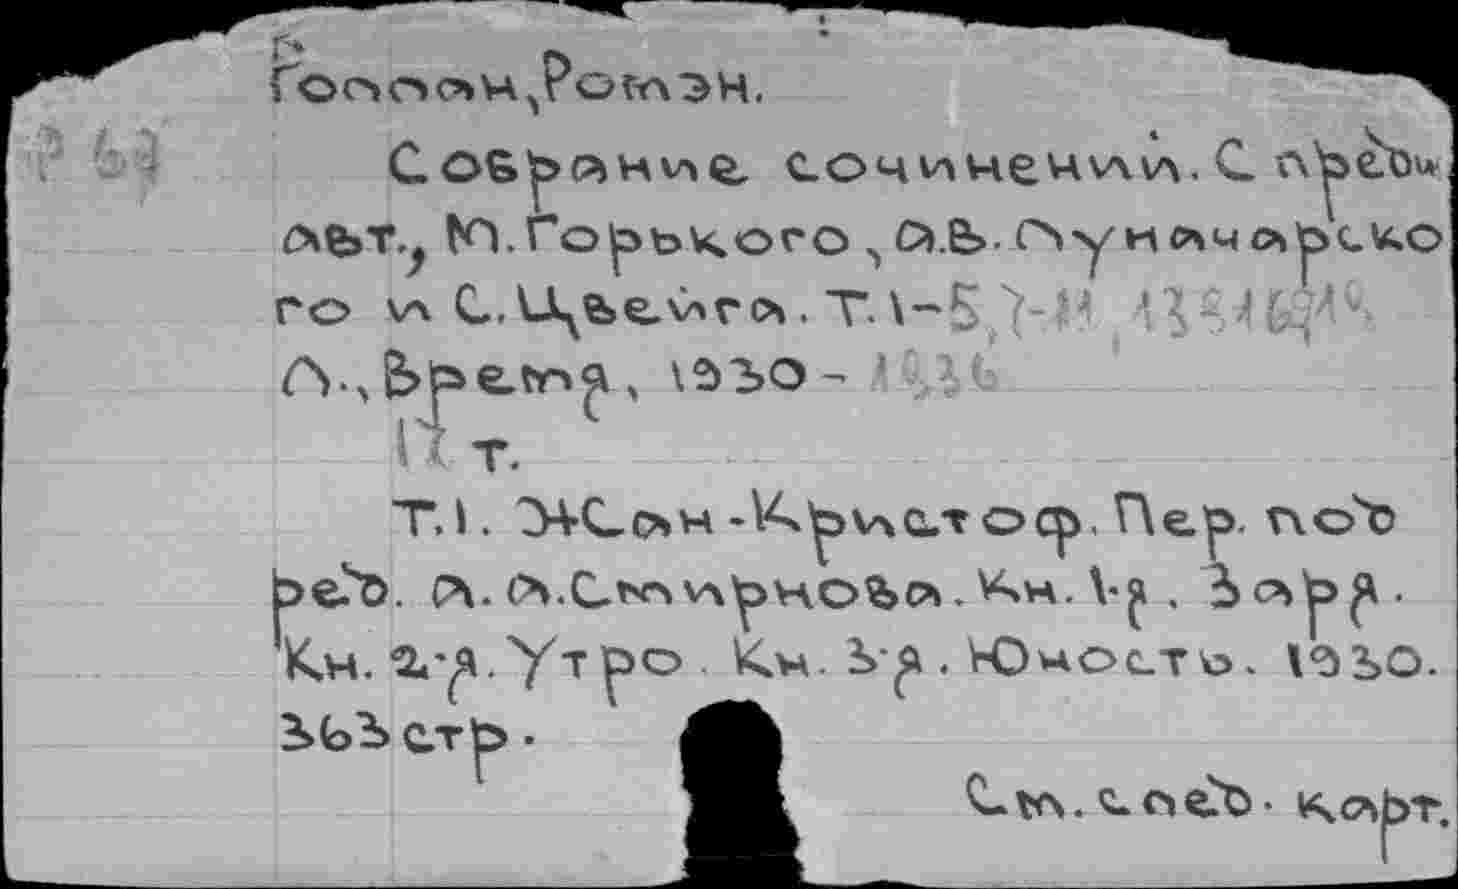 Роллан, Ромэн.
Собрание сочинений. С предисл
авт., М. Горького, А.В. Луначарско
го и С. Цвейга. Т. 1-5,7-11,13,14
Л., Время, 1930-1936
т.
Т.1. Жан-Кристоф. Пер. под
ред. А.А. Смирнова. Кн. 1-я. Заря.
Кн. 2-я. Утро. Кн. 3-я. Юность. 1930.
363 стр.
См. след. карт.